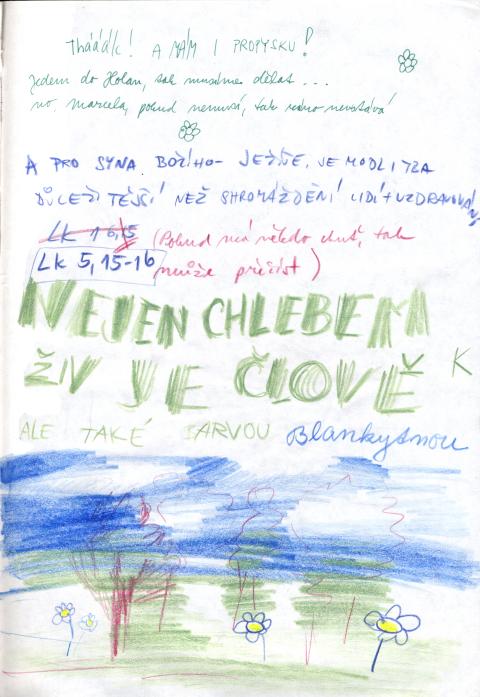 Thááák! A MÁM I PROPYSKU!
Jedem do Holan, tak musíme dělat ...
no. Marcela, pokud nemusí, tak ráno nevstává
A PRO SYNA BOŽÍHO - JEŽÍŠE, JE MODLITBA
DŮLEŽITĚJŠÍ NEŽ SHROMÁŽDĚNÍ LIDÍ + UZDRAVOVÁNÍ
Lk 16,15 (Pokud má někdo chuť, tak
Lk 5,15-16 může přečíst)
NEJEN CHLEBEM
ŽIV JE ČLOVĚK
ALE TAKÉ BARVOU Blankytnou